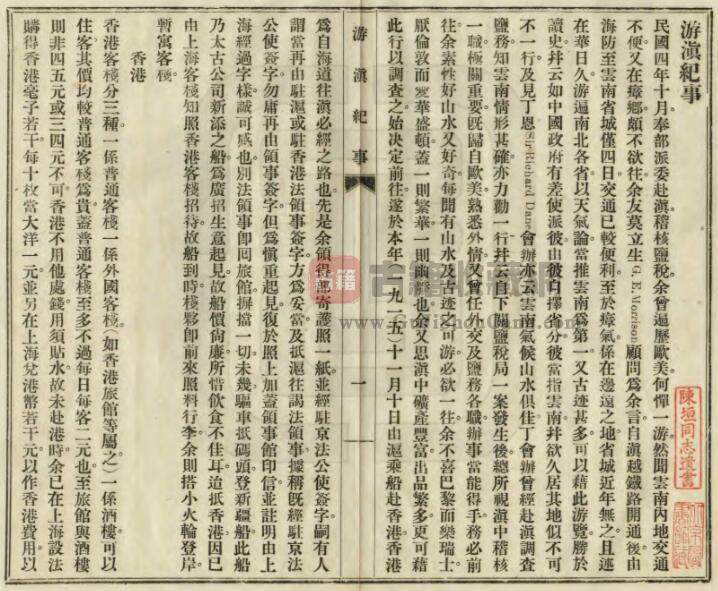 游滇紀事
民國四年十月奉部派委赴滇稽核鹽稅余曾遍歷歐美何憚一游然聞雲南內地交通
不便又在瘴鄉頗不欲往余友莫立生 G. E. Morrison 顧問爲余言自滇越鐵路開通後由
海防至雲南省城僅四日交通已較便利至於瘴氣係在邊遠之地省城近年無之且述
在華日久游遍南北各省以天氣論當推雲南爲第一又古迹甚多可以藉此游覽勝於
讀史并云如中國政府有差使派彼由彼自擇省分彼當指雲南并欲久居其地似不可
不一行及見丁恩 Sir Richard Dane 會辦亦云雲南氣候山水俱佳丁會辦曾經赴滇調查
鹽務知雲南情形甚確亦力勸一行并云自下關鹽稅局一案發生後總所視滇中稽核
一職極關重要旣歸自歐美熟悉外情又曾任外交及鹽務各職辦事當能得手務必前
往余素性好山水又好奇每聞有山水及古迹之可游必欲一往余不喜巴黎而樂瑞士
厭倫敦而愛華盛頓蓋一則繁華一則幽雅也余又思滇中礦產豐富出品繁多更可藉
此行以調查之始決定前往遂於本年(一九一五)十一月十日由滬乘船赴香港香港
游滇紀事
一
爲自海道往滇必經之路也先是余領得部寄護照一紙並經駐京法公使簽字嗣有人
謂當再由駐滬或駐香港法領事簽字方爲妥當及抵滬往謁法領事據稱旣經駐京法
公使簽字勿庸再由領事簽字但爲愼重起見復於照上加蓋領事館印信並註明由上
海經過字樣誠可感也別法領事卽囘旅館摒擋一切未幾驅車抵碼頭登新疆船此船
乃太古公司新添之船爲廣招生意起見故船價尙廉所惜飲食不佳耳迨抵香港因已
由上海客棧知照香港客棧招待故船到時棧夥卽前來照料行李余則搭小火輪登岸
暫寓客棧
香港
香港客棧分三種一係普通客棧一係外國客棧(如香港旅館等屬之)一係酒樓可以
住客其價均較普通客棧爲貴蓋普通客棧至多不過每日每客二元也至旅館與酒樓
則非四五元或三四元不可香港不用他處錢用須貼水故未赴港時余已在上海設法
購得香港毫子若干每十枚當大洋一元並另在上海兌港幣若干元以作香港費用以
陳垣同志遺書